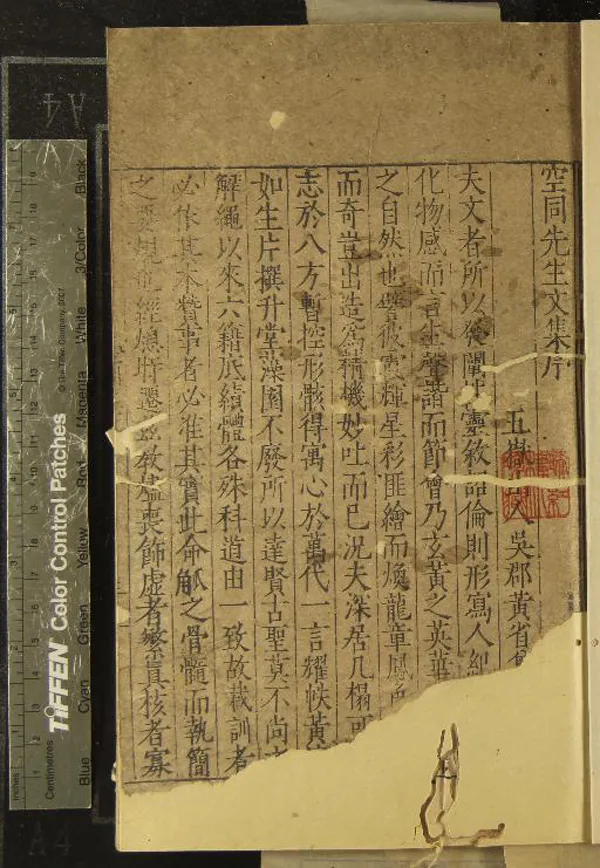 空同先生文集序
五嶽山人吳郡黃省
夫文者所以發闡性靈敘詔倫則形寫人紀
化物感而言生聲諧而節會乃玄黃之英華
之自然也譬彼雲輝星彩匪繪而煥龍章鳳色
而奇豈出造為精機妙吐而已況夫深居几榻
志於八方暫控形骸得寓心於萬代一言耀帙黃
如生片撰升堂藻園不廢所以達賢古聖莫不尚
解繩以來六籍底績體各殊科道由一致故裁訓者
必依其本贊事者必准其實此命觚之骨髓而執簡
之要 也經 將 教 喪飾虛者繁真核者寡
TIFFEN Color Control Patches
© The Tiffen Company, 2007
Blue
Cyan
Green
Yellow
Red
Magenta
White
3/Color
Black
Centimetres
Inches
A4
A4